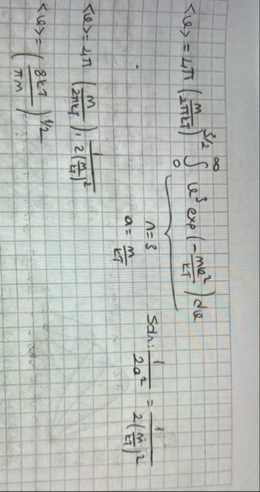 <v> = 4π (m/2πkT)^3/2 ∫₀^∞ v³ exp(-mv²/kT) dv
n=3
a= m/kT
Sdn: 1/2a² = 1/2(m/kT)²
<v> = 4π (m/2πkT) · 1/2(m/kT)²
<v> = (8kT/πm)^1/2